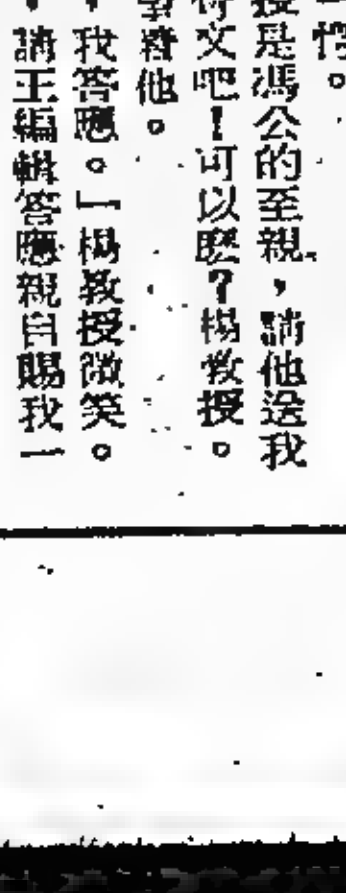 愕。
授是馮公的至親，請他送我
文吧！可以麽？楊教授。
着他。
，我答應。」楊教授微笑。
，請王編輯答應親自賜我一